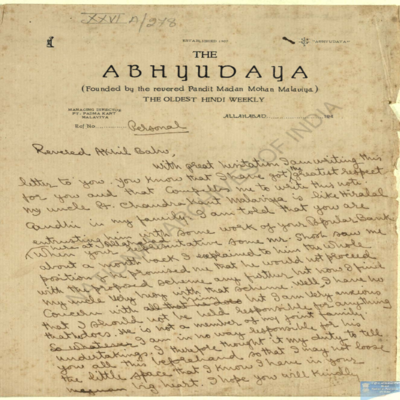 XXVI A/278.
ESTABLISHED 1907
"ABHYUDAYA"
THE
ABHYUDAYA
(Founded by the revered Pandit Madan Mohan Malaviya)
THE OLDEST HINDI WEEKLY
MANAGING DIRECTOR
PT. PADMA KANT
MALAVIYA
ALLAHABAD 193
Ref No. Personal
Revered Akhil Babu,
With great hesitation I am writing this
letter to you. you know that I have got the greatest respect
for you and that compelles me to write this note.
My uncle Pt. Chandra Kant Malaviya is like Hiralal
Gandhi in my family. I am told that you are
entrusting him with some work of your Popular Bank
When your representative some Mr. Shot saw me
about a month back I explained to him the whole
position & he promised me that he would not proceed
with the proposed scheme any further but now I find
my uncle very busy with that scheme. Well I have no
concern with but I am very anxious
that I should not be held responsible for anything
that does. He is not a member of my joint family
So whatever I am in no way responsible for his
undertakings. I therefore thought it my duty to tell
you all this beforehand so that I may not loose
the little space that I know I have in your
big heart. I hope you will kindly